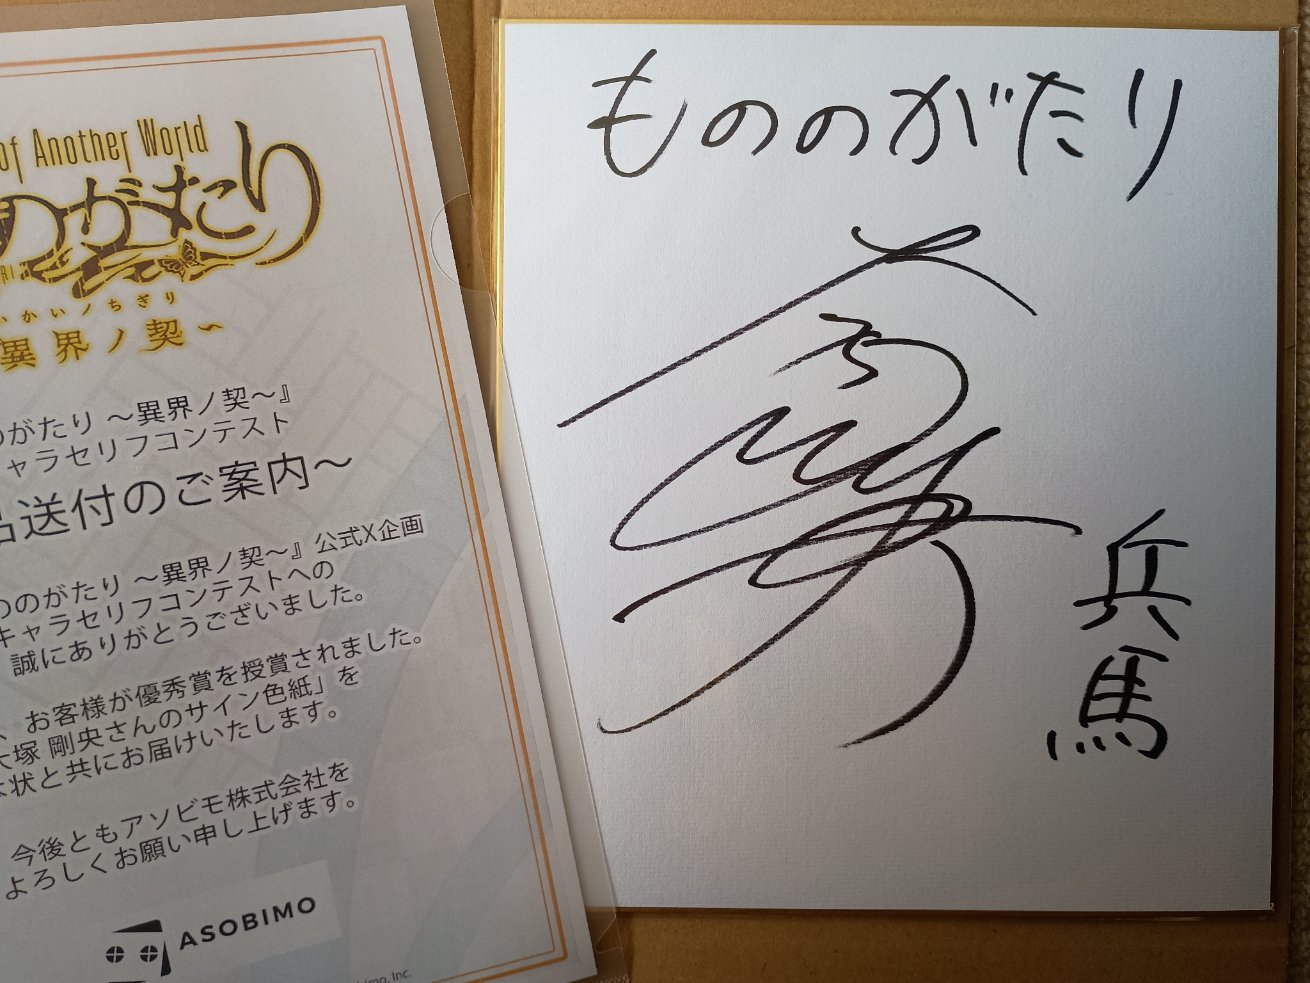 of Another World
のがたり
かいノちぎり
異界ノ契～
のがたり ～異界ノ契～』
ャラセリフコンテスト
送付のご案内～
ののがたり ～異界ノ契～』公式X企画
キャラセリフコンテストへの
誠にありがとうございました。
、お客様が優秀賞を授賞されました。
大塚 剛央さんのサイン色紙」を
状と共にお届けいたします。
今後ともアソビモ株式会社を
よろしくお願い申し上げます。
ASOBIMO
Inc.
もののがたり
兵馬